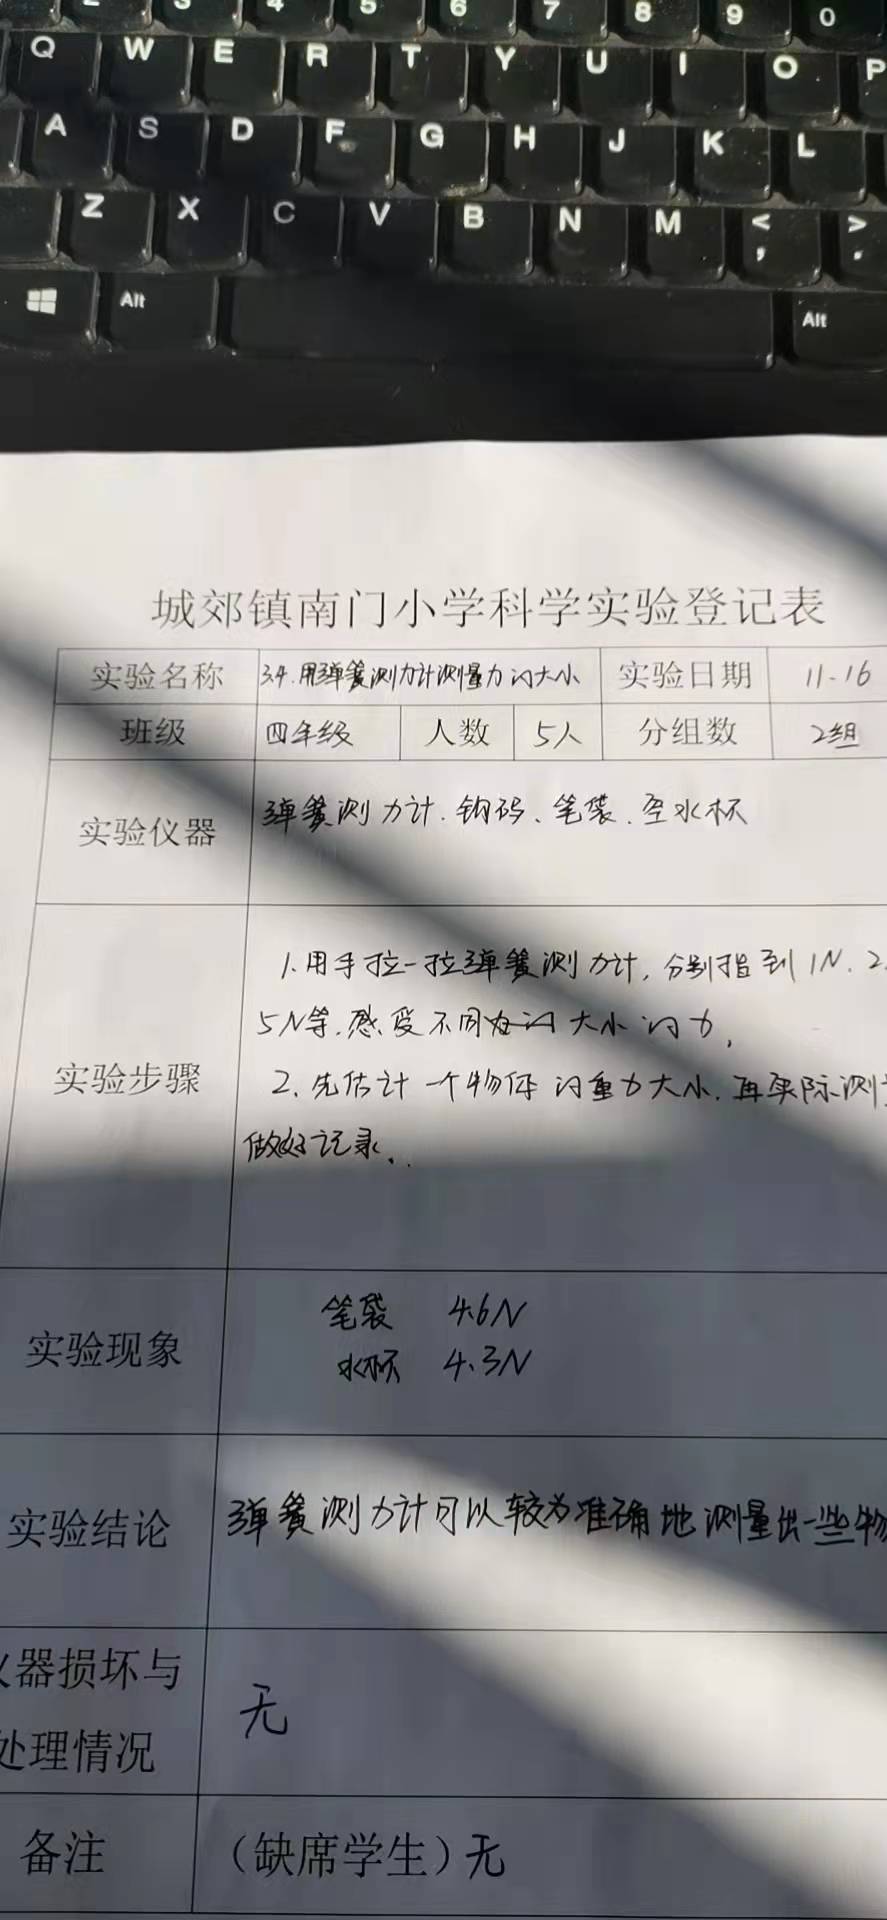 2 3 4 5 6 7 8 9 0
Q W E R T Y U I O P
A S D F G H J K L
Z X C V B N M < , > .
Alt Alt
城郊镇南门小学科学实验登记表
实验名称 3.4.用弹簧测力计测量力的大小 实验日期 11-16
班级 四年级 人数 5人 分组数 2组
实验仪器 弹簧测力计、钩码、笔袋、空水杯
1.用手拉一拉弹簧测力计,分别指到1N、2
5N等,感受不同的大小的力。
实验步骤
2.先估计一个物体的重力大小,再实际测
做好记录。
笔袋 4.6N
实验现象
水杯 4.3N
实验结论 弹簧测力计可以较为准确地测量出一些物
仪器损坏与
无
处理情况
备注 (缺席学生)无